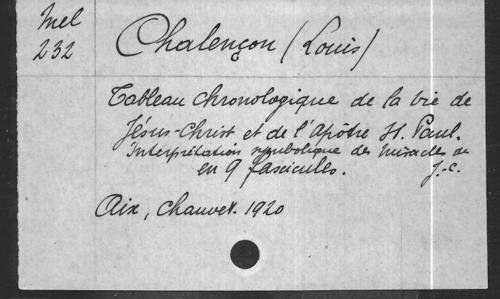 Mel
232
Chalençon (Louis)
Tableau chronologique de la vie de
Jésus-Christ et de l'Apôtre St. Paul.
Interprétation symbolique des Miracles de
J.-C.
en 9 fascicules.
Aix, Chauvet. 1920